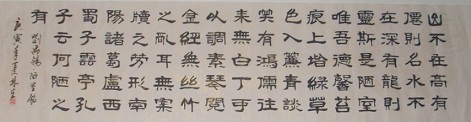 山不在高有
僊則名水不
在深有龍則
靈斯是陋室
唯吾德馨苔
痕上堦綠草
色入簾青談
笑有鴻儒往
來無白丁可
以調素琴閱
金經無絲竹
之亂耳無案
牘之勞形南
陽諸葛廬西
蜀子雲亭孔
子云何陋之
有
劉禹錫陋室銘
庚寅年